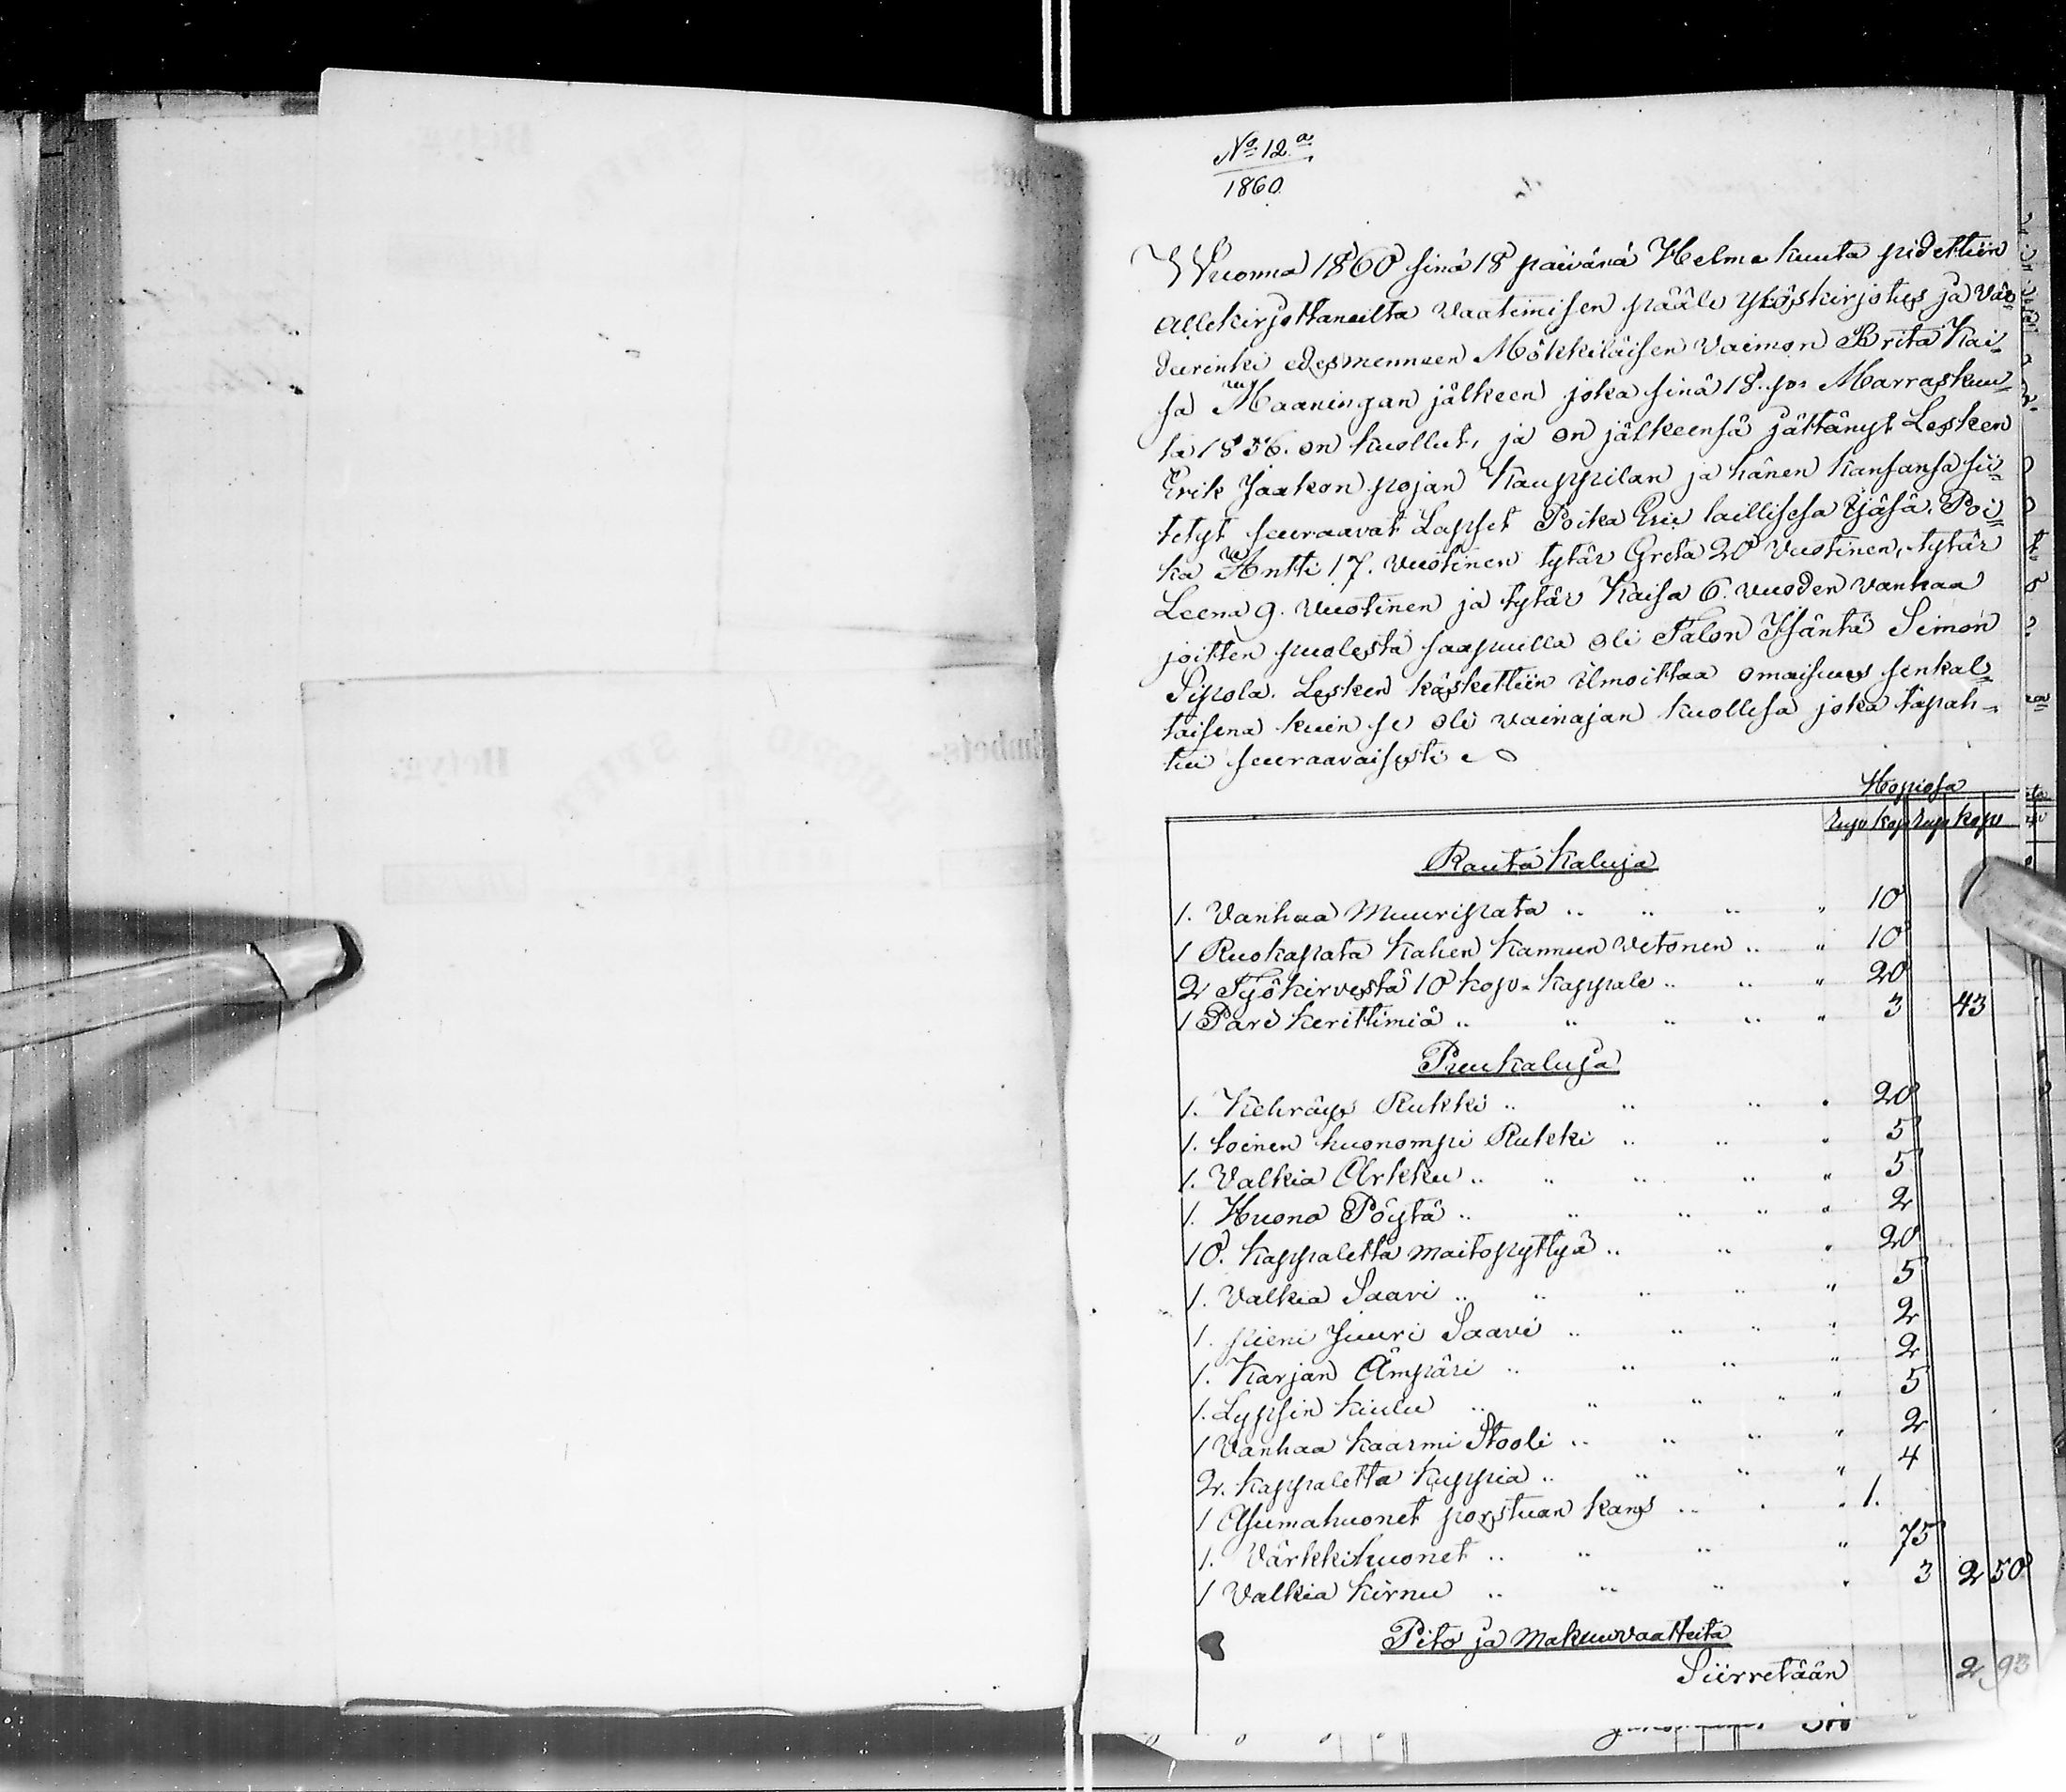 No 12 a
1860.
Wuonna 1860 sinä 18 päivänä Helme kuuta pidettiin
allekirjottaneilta vaatimisen pääle ylöskirjotus ja vär-
deerinki edesmenneen Mökkiläisen Vaimon Brita Kai-
sa Maaningan jälkeen joka sinä 18. p:n Marraskuu-
ta 1856. on kuollut, ja on jälkeensä jättänyt Lesken
Erik Jaakon pojan Kauppilan ja hänen kansansa sii-
tetyt seuraavat Lapset Poika Eric laillisesa ijäsä. Poi-
ka Antti 17. vuotinen tytär Greta 20 vuotinen, tytär
Leena 9. vuotinen ja tytär Kaisa 6. vuoden vanhaa
joitten puolesta saapuilla oli Talon Isäntä Simon
Sipola. Lesken käskettiin ilmoittaa omaisuus senkal-
taisena kuin se oli vainajan kuollesa joka tapah-
tui seuraavaisesti
Hopiosa
Rup kop Rup kop
Rauta kaluja
1. Vanhaa Muuripata .. .. .. " 10
1 Ruokapata kahen kannun vetonen .. " 10
2 Työkirvestä 10 kop. kappale .. .. " 20
1 Pari kerittimiä .. .. .. .. " 3 43
Puukaluja
1. Kehräys Rukki .. .. .. " 20
1. toinen huonompi Rukki .. .. " 5
1. Valkia Arkku .. .. .. .. " 5
1. Huono Pöytä .. .. .. .. " 2
10. kappaletta maitopyttyä .. .. " 20
1. Valkia Saavi .. .. .. .. " 5
1. pieni Juuri Saavi .. .. .. " 2
1. Karjan Ämpäri .. .. .. " 2
1. Lypsin kiulu .. .. .. .. " 5
1 Vanhaa kaarmi Stooli .. .. .. " 2
2. kappaletta kuppia .. .. .. " 4
1 Asumahuonet porstuan kans .. . " 1.
1. Värkkihuonet .. .. .. " 75
1 Valkia kirnu .. .. .. " 3 2 50
Pito ja Makuuvaatteita
Siirretään 2 93